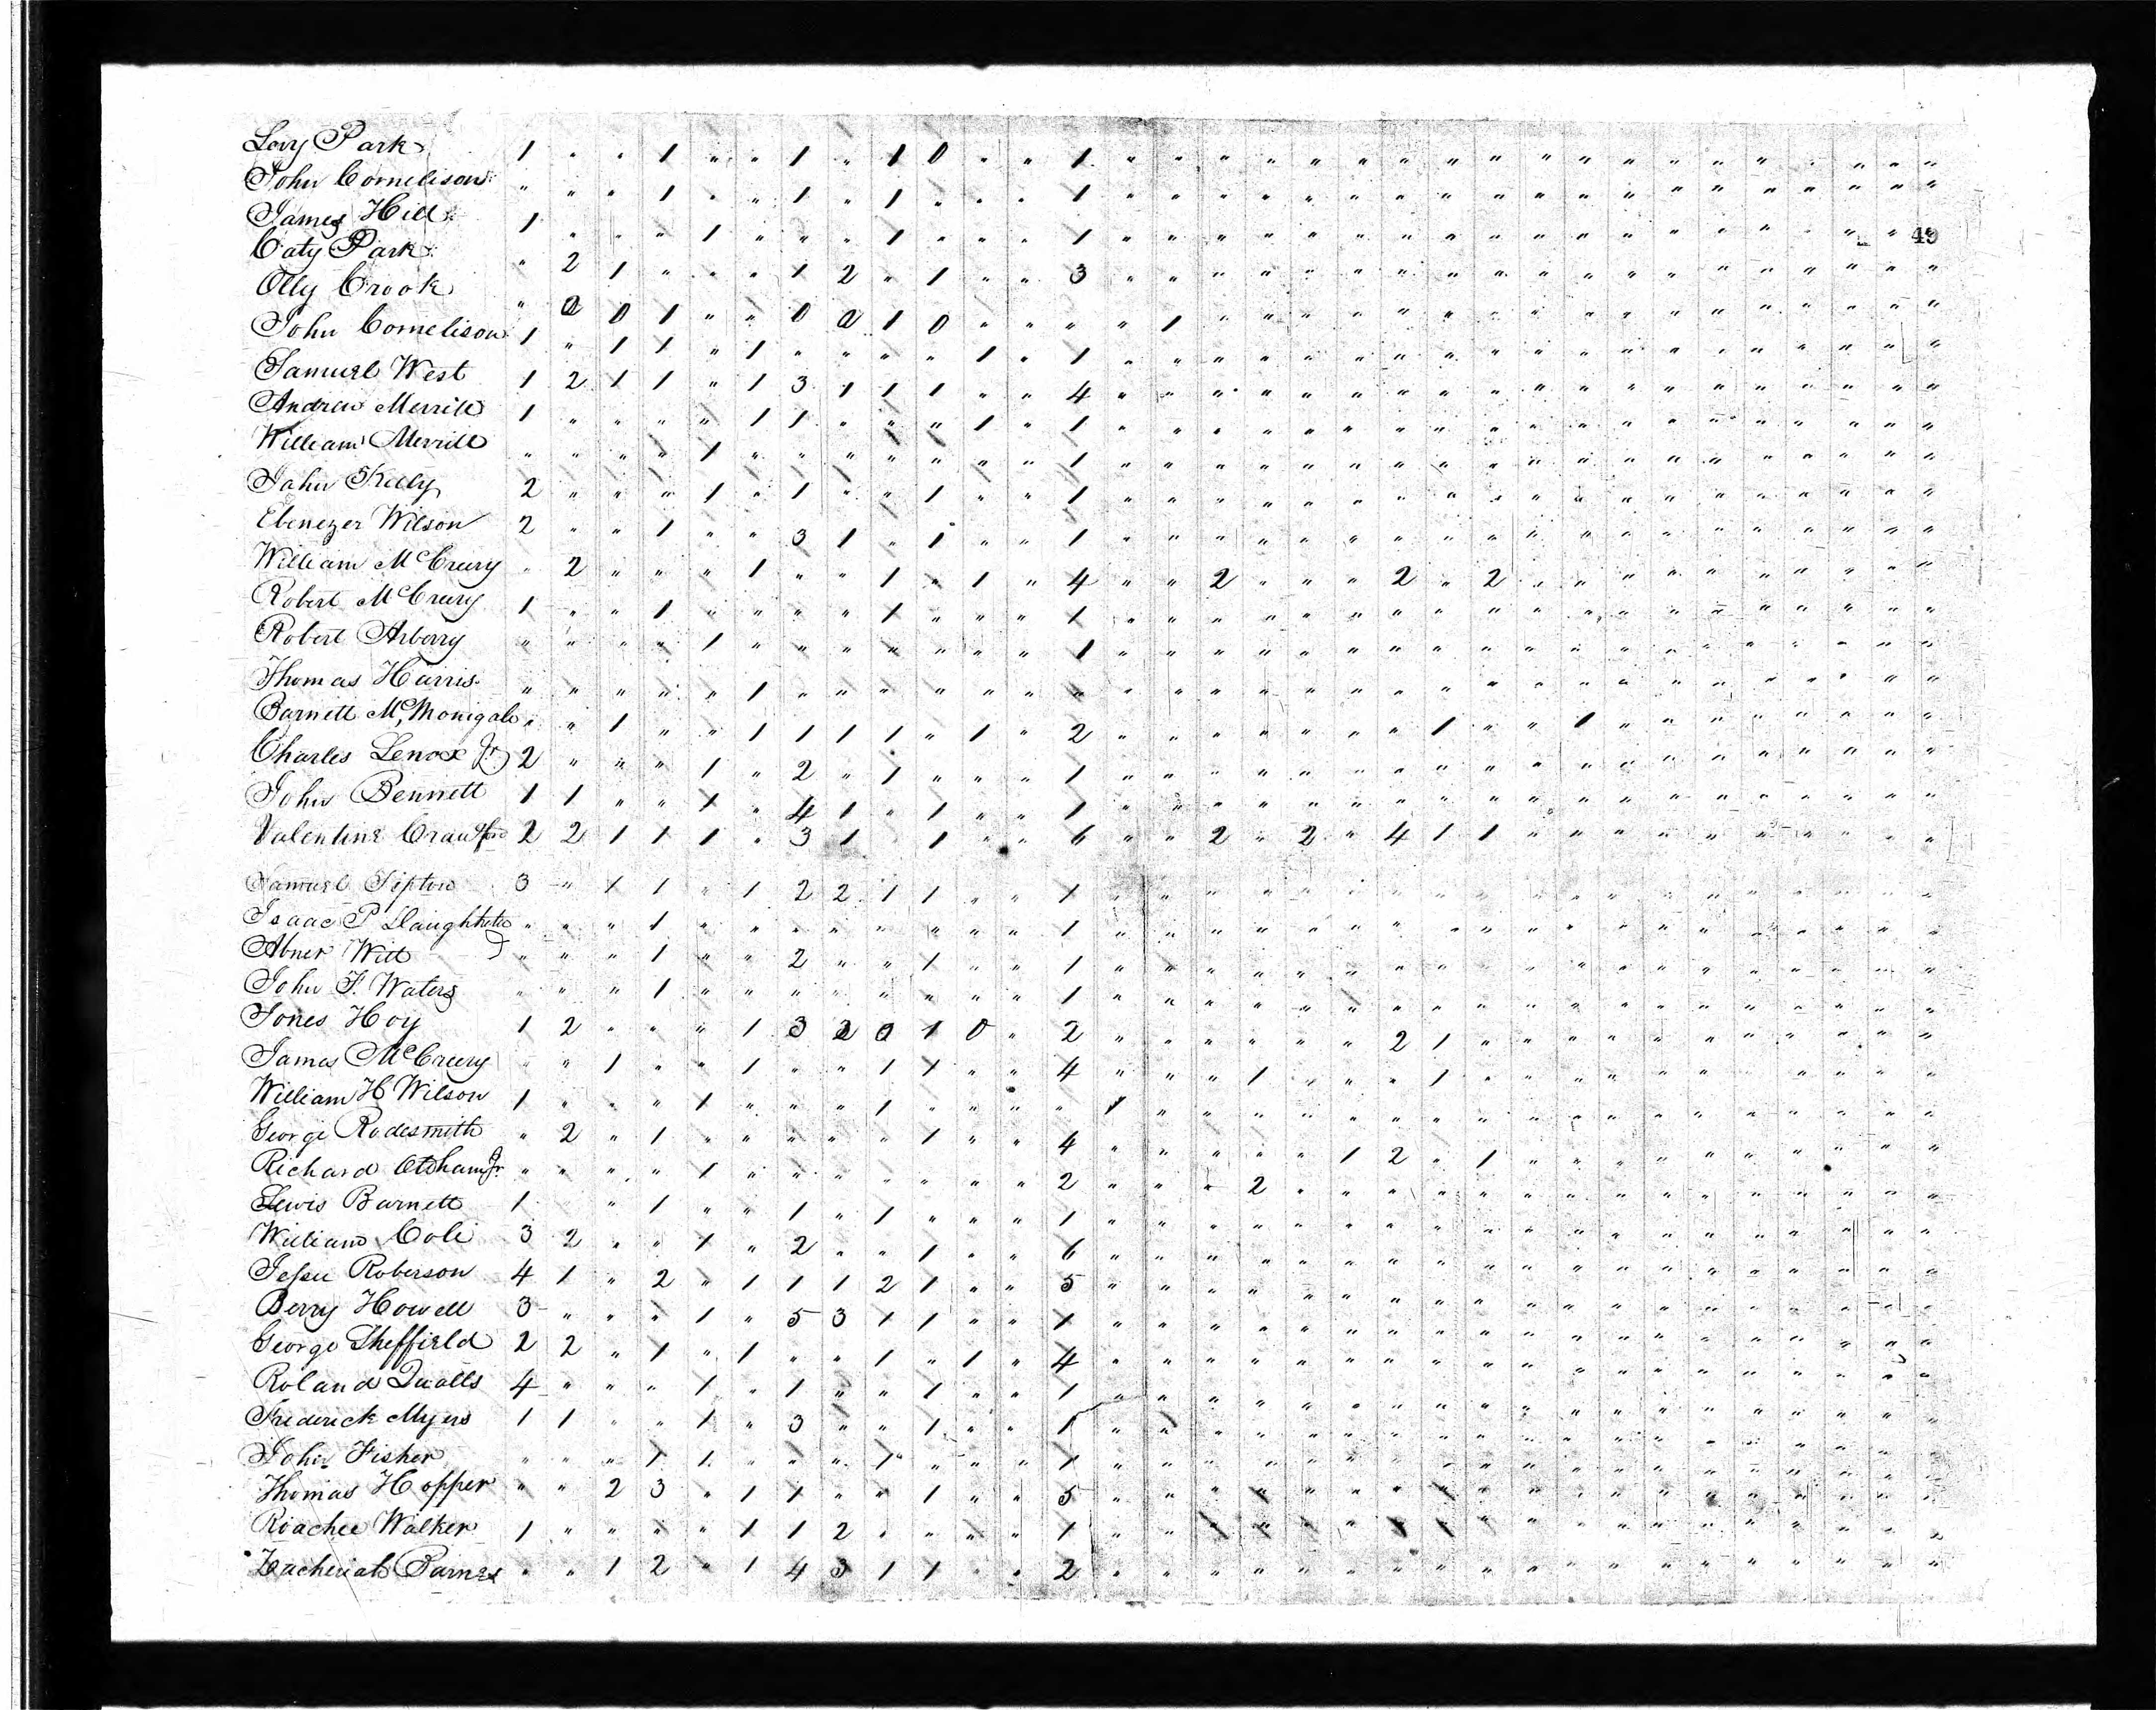 Levy Park 1 " " 1 " " 1 " 1 0 " " 1 " " " " " " " " " " " " " " " " " " "
John Cornelison " " " 1 " " 1 " 1 " " " 1 " " " " " " " " " " " " " " " " " " "
49
James Hill 1 " " " 1 " " " 1 " " " 1 " " " " " " " " " " " " " " " " " "
Caty Park " 2 1 " " " 1 2 " 1 " " 3 " " " " " " " " " " " " " " " " " " "
Olly Crook " 0 0 1 " " 0 0 1 0 " " " " 1 " " " " " " " " " " " " " " " " "
John Cornelison 1 " 1 1 " 1 " " " " 1 " 1 " " " " " " " " " " " " " " " " " " "
Samuel West 1 2 1 1 " 1 3 1 1 1 " " 4 " " " " " " " " " " " " " " " " " " "
Andrew Merrill 1 " " " " 1 1 " " " 1 " 1 " " " " " " " " " " " " " " " " " " "
William Merrill " " " " 1 " " " " " " " 1 " " " " " " " " " " " " " " " " " " "
John Kelly 2 " " " 1 " 1 " " 1 " " 1 " " " " " " " " " " " " " " " " " " "
Ebenezer Wilson 2 " " 1 " " 3 1 " 1 " " 1 " " " " " " " " " " " " " " " " " " "
William McCreery " 2 " " " 1 " " 1 " 1 " 4 " " 2 " " " 2 " 2 " " " " " " " " " "
Robert McCreery 1 " " 1 " " " " 1 " " " 1 " " " " " " " " " " " " " " " " " " "
Robert Arberry " " " " 1 " " " " " " " 1 " " " " " " " " " " " " " " " " " " "
Thomas Harris " " " " " 1 " " " " " " " " " " " " " " " " " " " " " " " " " "
Barnett McMonigale " " 1 " " 1 1 1 1 " 1 " 2 " " " " " " " 1 " " 1 " " " " " " " "
Charles Lenox Jr 2 " " " 1 " 2 " 1 " " " 1 " " " " " " " " " " " " " " " " " " "
John Bennett 1 1 " " 1 " 4 1 " 1 " " 1 " " " " " " " " " " " " " " " " " " "
Valentine Crawford 2 2 1 1 1 " 3 1 1 " " 6 " " 2 " 2 " 4 1 1 " " " " " " " " " "
Samuel Tipton 3 " 1 1 " 1 2 2 1 1 " " 1 " " " " " " " " " " " " " " " " " " "
Isaac P Slaughter " " " 1 " " " " " " " " 1 " " " " " " " " " " " " " " " " " " "
Abner Witt " " " 1 " " 2 " " 1 " " 1 " " " " " " " " " " " " " " " " " " "
John F. Waters " " " 1 " " " " " " " " 1 " " " " " " " " " " " " " " " " " " "
Jones Hoy 1 2 " " " 1 3 2 0 1 0 " 2 " " " " " " 2 1 " " " " " " " " " " "
James McCreery " " 1 " " 1 " " 1 1 " " 4 " " " 1 " " " 1 " " " " " " " " " " "
William H Wilson 1 " " " 1 " " " 1 " " " " 1 " " " " " " " " " " " " " " " " " "
George Rodesmith " 2 " 1 " " " " " 1 " " 4 " " " " " 1 2 " 1 " " " " " " " " " "
Richard Oldham Jr. " " " " 1 " " " " " " " 2 " " " 2 " " " " " " " " " " " " " " "
Lewis Barnett 1 " 1 " " 1 " 1 " " " 1 " " " " " " " " " " " " " " " " " " "
William Cole 3 2 " " 1 " 2 " " 1 " " 6 " " " " " " " " " " " " " " " " " " "
Jesse Roberson 4 1 " 2 " 1 1 1 2 1 " " 5 " " " " " " " " " " " " " " " " " " "
Berry Howell 3 " " " 1 " 5 3 1 1 " " 1 " " " " " " " " " " " " " " " " " " "
George Sheffield 2 2 " 1 " 1 " " 1 " 1 " 4 " " " " " " " " " " " " " " " " " " "
Roland Qualls 4 " " " 1 " 1 " " 1 " " 1 " " " " " " " " " " " " " " " " " " "
Frederick Myers 1 1 " " 1 " 3 " " 1 " " 1 " " " " " " " " " " " " " " " " " " "
John Fisher " " " 1 1 " " " 1 " " " 1 " " " " " " " " " " " " " " " " " " "
Thomas Hopper " " 2 3 " 1 1 " " 1 " " 5 " " " " " " " " " " " " " " " " " " "
Roachee Walker 1 " " " " 1 1 2 " " " " 1 " " " " " " " " " " " " " " " " " "
Zacheriah Barnes " " 1 2 " 1 4 3 1 1 " " 2 " " " " " " " " " " " " " " " " " " "